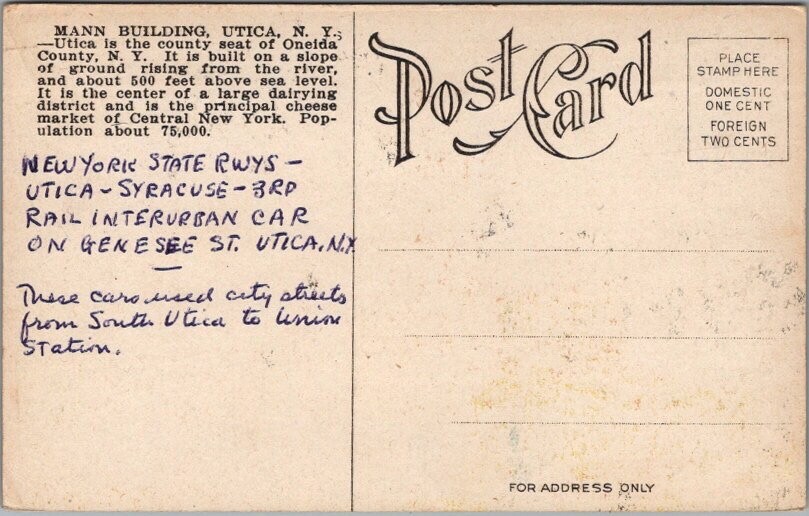 MANN BUILDING, UTICA, N. Y.
—Utica is the county seat of Oneida
County, N. Y. It is built on a slope
of ground rising from the river,
and about 500 feet above sea level.
It is the center of a large dairying
district and is the principal cheese
market of Central New York. Pop-
ulation about 75,000.
NEW YORK STATE RWYS –
UTICA – SYRACUSE – 3RD
RAIL INTERURBAN CAR
ON GENESEE ST. UTICA, N.Y.
These cars used city streets
from South Utica to Union
Station.
Post Card
PLACE
STAMP HERE
DOMESTIC
ONE CENT
FOREIGN
TWO CENTS
FOR ADDRESS ONLY